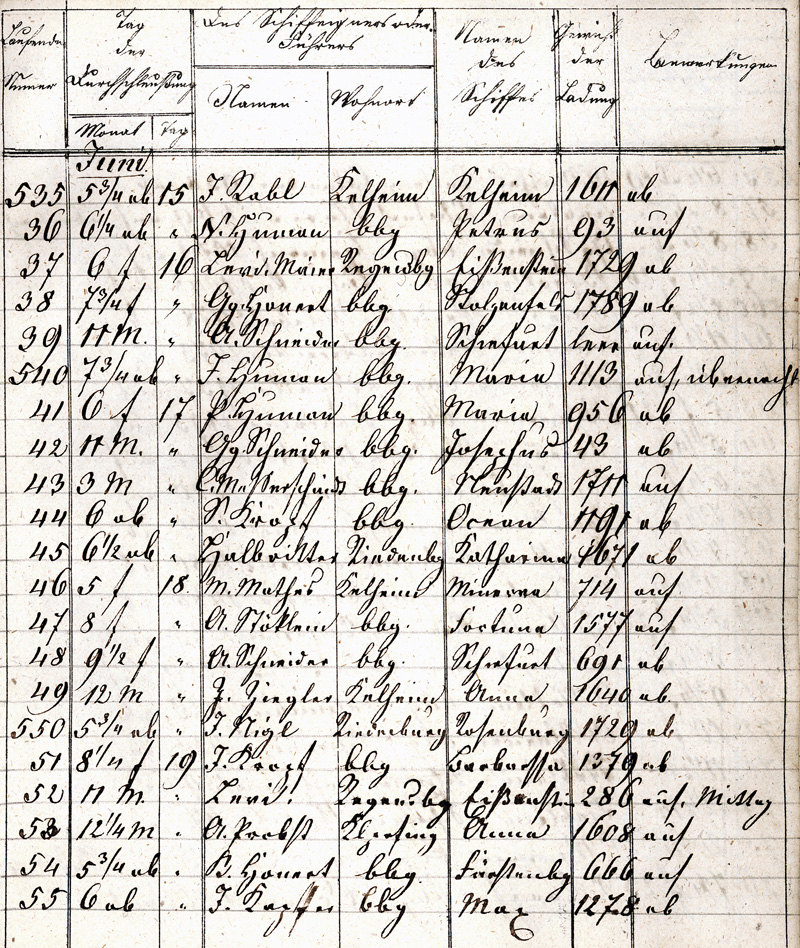 Laufende Numer | Tag der Durchschleußung | Des Schiffeigners oder Führers | Namen des Schiffes | Gewicht der Ladung | Bemerkungen
Monat | Tag | Namen | Wohnort
Juni
535 5 3/4 ab 15 J. Rabl Kelheim Kelheim 1611 ab
36 6 1/4 ab " N. Human bbg Petrus 93 auf
37 6 f 16 Levi. Maier Regensbg 1729 ab
38 7 3/4 f " Gg. bbg. Stolzenfels 1789 ab
39 11 M. " A. Schneider bbg. leer auf.
540 7 3/4 ab " J. Human bbg. Maria 1113 auf, übernacht
41 6 f 17 P. Human bbg. Maria 956 ab
42 11 M. " Gg. Schneider bbg. Josephus 43 ab
43 3 M " C. Messerschmidt bbg. Neustadt 1711 auf
44 6 ab " S. Kropf bbg. Ocean 1191 ab
45 6 1/2 ab " Halbritter Riedenbg Katharina 1671 ab
46 5 f 18. M. Mathes Kelheim Minerva 714 auf
47 8 f " A. Stöklein bbg. Fortuna 1577 auf
48 9 1/2 f " A. Schneider bbg. 691 ab
49 12 M " Ziegler Kelheim Anna 1640 ab.
550 5 3/4 ab " J. Nigl Riedenburg Rosenburg 1729 ab
51 8 1/4 f 19 J. Kropf bbg Barbarossa 1379 ab
52 11 M. " Levi! Regensbg 286 auf, Mittag
53 12 1/4 M " A. Probst Anna 1608 auf
54 5 3/4 ab " B. bbg. Fürstenbg 666 auf
55 6 ab " J. bbg Max 1278 ab